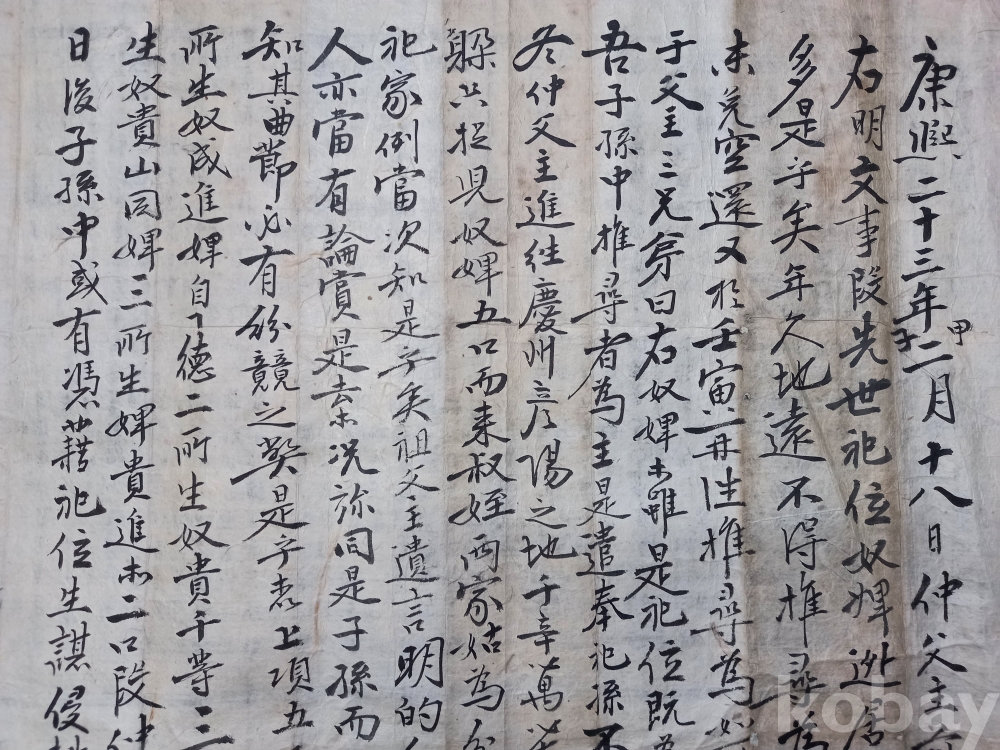 康熙二十三年甲子二月十八日仲父主
右明文事段先世祀位奴婢逃居
多是乎矣年久地遠不得推尋
未免空還又於壬寅年分往推尋為
于父主三兄弟曰右奴婢等雖是祀位既
吾子孫中推尋者為主是遣奉祀孫不
仲父主進往慶州彦陽之地千辛萬
躬只捉見奴婢五口而来叔姪両家姑為
祀家例當次知是乎矣祖父主遺言明的
人亦當有論賞是去乎况旀同是子孫而
知其曲節必有紛競之弊是乎等以上項五
所生奴成進婢自丁德二所生奴貴千等三
生奴貴山同婢三所生婢貴進等二口段仲
日後子孫中或有憑藉祀位生謀侵
kobay